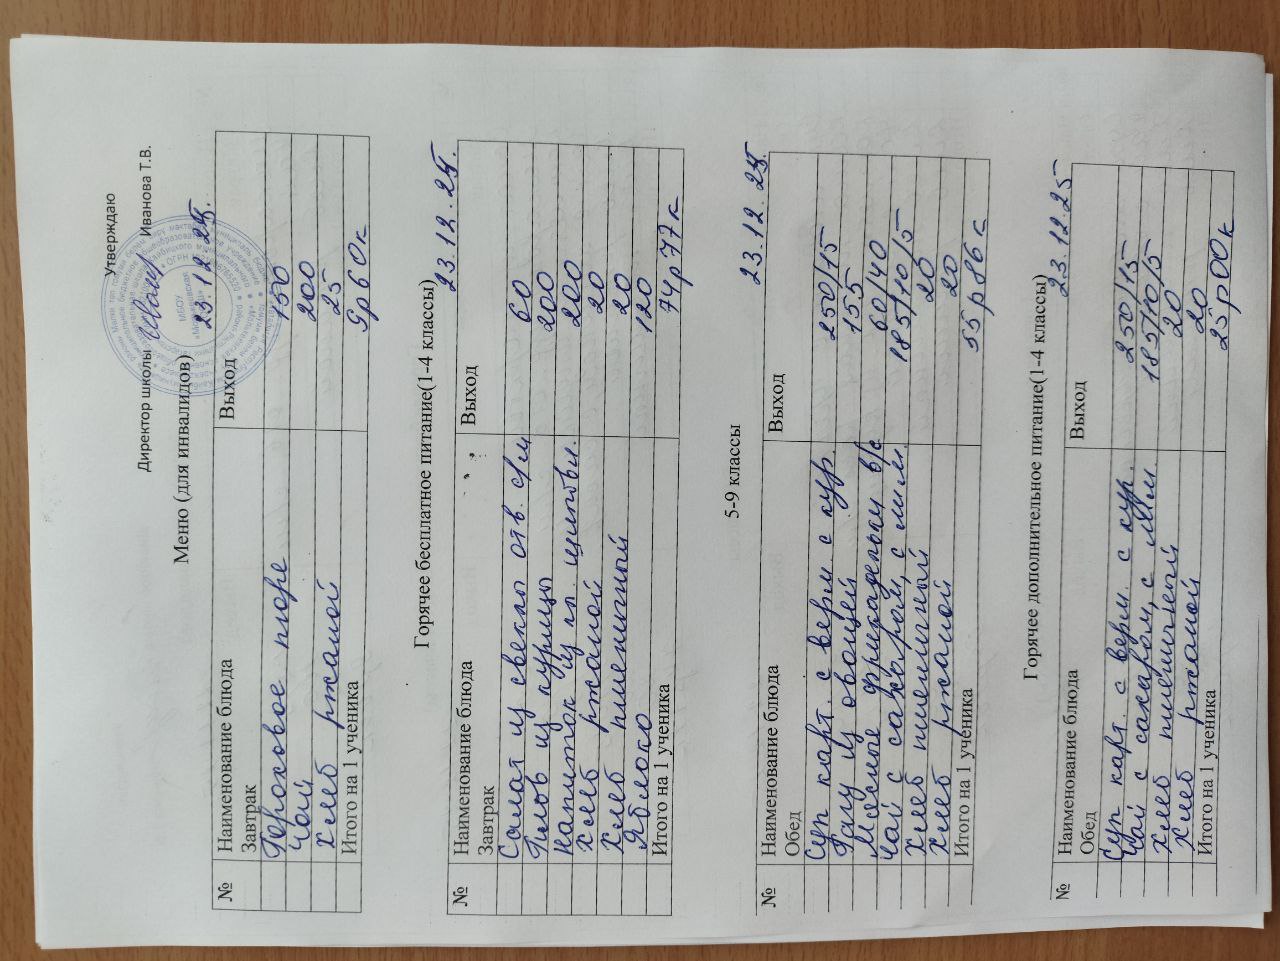 Утверждаю
Директор школы Иванова Т.В.
Меню (для инвалидов) 23.12.25.
№ Наименование блюда Выход
Завтрак
Гороховое пюре 150
Чай 200
Хлеб ржаной 25
Итого на 1 ученика 9р60к
Горячее бесплатное питание(1-4 классы) 23.12.25.
№ Наименование блюда Выход
Завтрак
Салат из свеклы отв. с/м 60
Плов из курицы 200
Напиток из пл. шиповн. 200
Хлеб ржаной 20
Хлеб пшеничный 20
Яблоко 120
Итого на 1 ученика 74р77к
5-9 классы 23.12.25.
№ Наименование блюда Выход
Обед
Суп карт. с верм с кур. 250/15
Рагу из овощей 155
Мясные фрикадельки в/с 60/40
Чай с сахаром, с лим. 185/10/5
Хлеб пшеничный 20
Хлеб ржаной 20
Итого на 1 ученика 55р86к
Горячее дополнительное питание(1-4 классы) 23.12.25
№ Наименование блюда Выход
Обед
Суп карт. с верм. с кур. 250/15
Чай с сахаром, с лим 185/10/5
Хлеб пшеничный 20
Хлеб ржаной 20
Итого на 1 ученика 25р00к